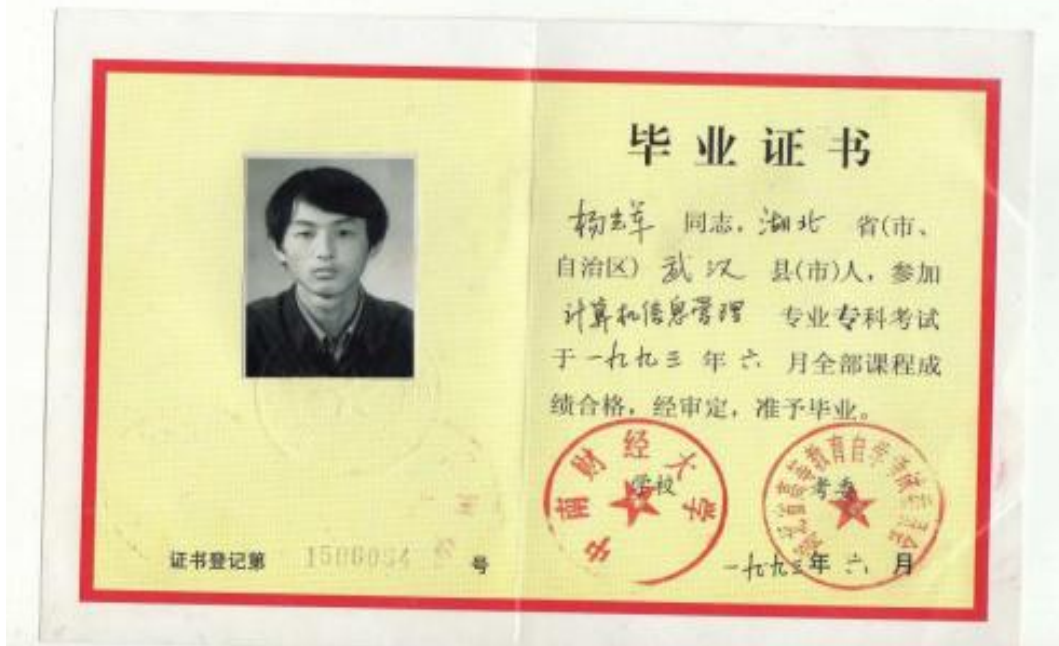 毕业证书
杨志军 同志，湖北 省(市、
自治区) 武汉 县(市)人，参加
计算机信息管理 专业专科考试
于一九九三年六月全部课程成
绩合格，经审定，准予毕业。
中南财经大学
学校
湖北省高等教育自学考试委员会
考委
一九九三年六月
证书登记第 1506034 号